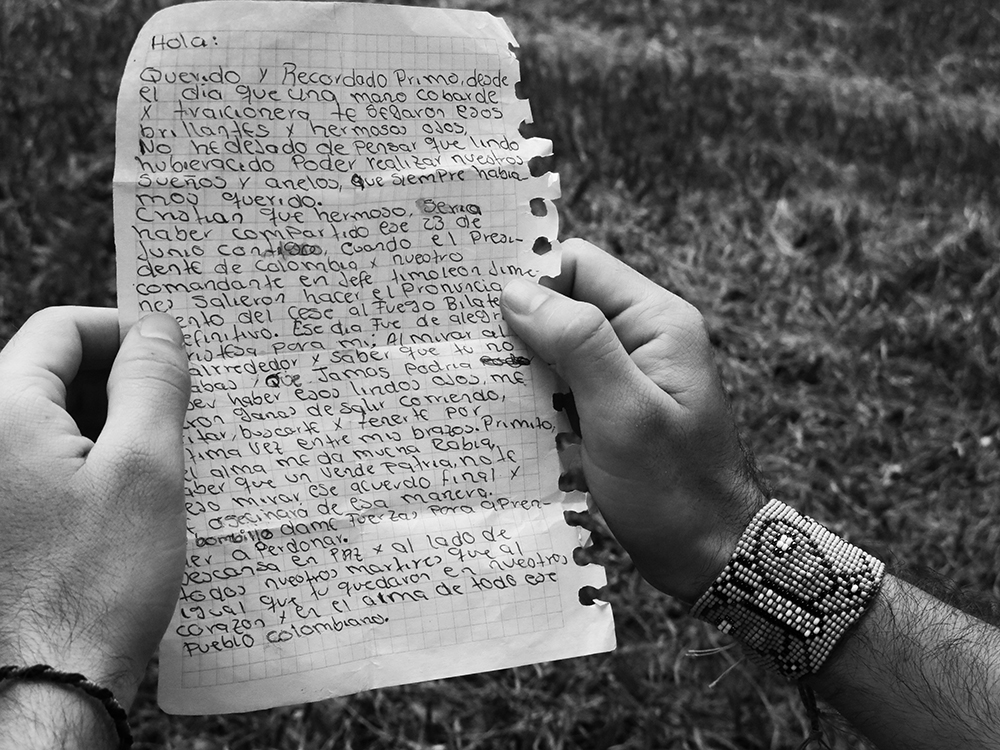 Hola:
Querido y Recordado Primo, desde
el dia que una mano cobarde
x traicionera te segaron esos
brillantes x hermosos ojos,
No he dejado de pensar que lindo
hubieracido Poder realizar nuestros
sueños y anelos, que siempre habia
mos querido.
Cristian que hermoso, seria
haber compartido ese 23 de
Junio contigo, cuando el Presi-
dente de colombia x nuestro
comandante en Jefe timoleon Jime-
nes salieron hacer el Pronuncia
ento del cese al Fuego Bilate
efinitivo. Ese dia fue de alegri
risteza para mi; Al mirar al
alrrededor x saber que tu no
abas, que Jamas podria
ber haber esos lindos ojos, me
ron ganas de salir corriendo,
itar, buscarte x tenerte por
tima vez entre mis brazos. Primito,
el alma me da mucha Rabia,
aber que un vende patria, no le
eso mirar ese acuerdo final x
e asecinara de esa manera.
bombillo dame fuerzas para apren-
er a Perdonar.
Descansa en Paz x al lado de
todos nuestros martires que al
igual que tu quedaron en nuestros
corazon x en el alma de todo ese
Pueblo colombiano.